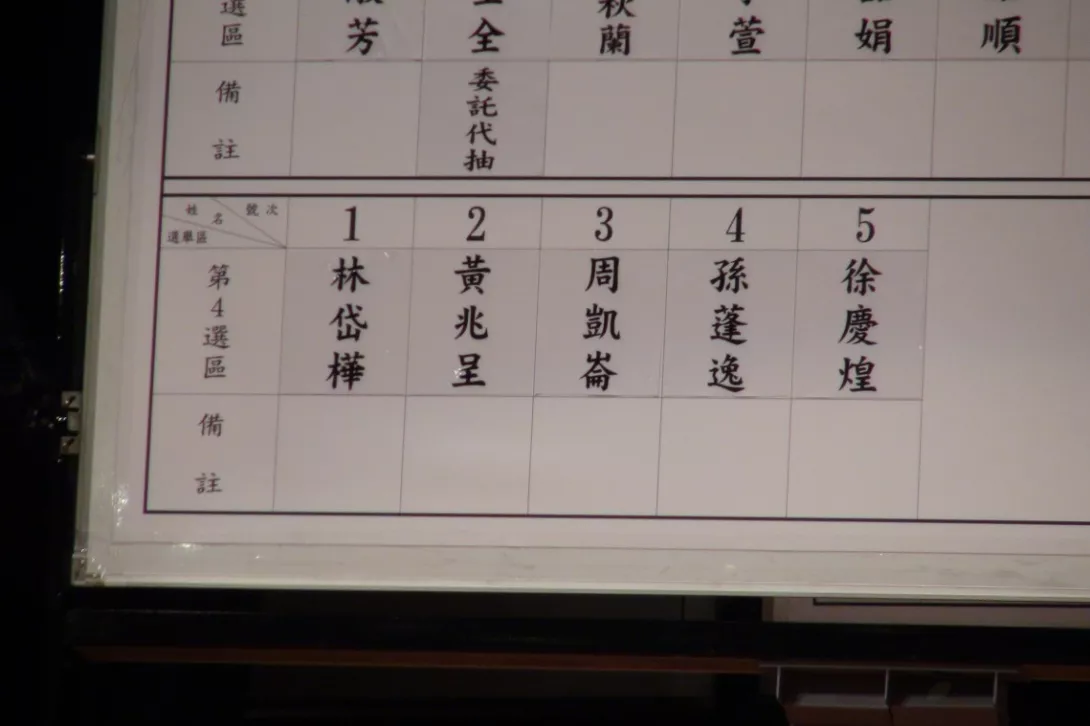 選區 芳 全 秋蘭 萱 娟 順
備註 委託代抽
姓名 號次 選舉區 1 2 3 4 5
第4選區 林岱樺 黃兆呈 周凱崙 孫蓬逸 徐慶煌
備註